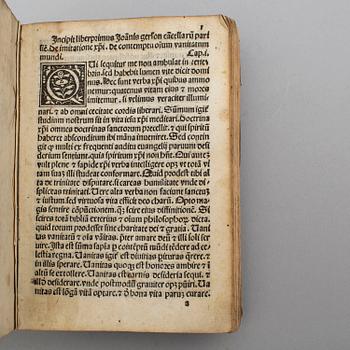 1
Incipit liber primus Joānis gerson cācellarij pari
siē. de imitatione xp̄i. ⁊ de contemptu oīum vanitatum
mundi. Cap. i.
QUi sequitur me non ambulat in tene
bris: sed habebit lumen vite dicit domi
nus. Hec sunt verba xp̄i: quibus ammo
nemur: quatenus vitam eius ⁊ mores
imitemur. si velimus veraciter illumi
nari. ⁊ ab omni cecitate cordis liberari. Summum igit̄
studium nostrum sit in vita iesu christi meditari. Doctrina
xp̄i omnes doctrinas sanctorum precellit. ⁊ qui spiritū
haberet absconditum ibi māna inveniret. Sed contin
git q̄ multi ex frequenti auditu euangelij paruum desi
derium sentiunt: quia spiritum xp̄i non hn̄t. Qui autē
vult plene ⁊ sapide xp̄i verba intelligere: opz vt totā vi
tam suā illi studeat conformare. Quid prodest tibi al
ta de trinitate disputare: si careas humilitate: vnde di
spliceas trinitati. Vere alta verba non faciunt sanctum
⁊ iustum: sed virtuosa vita efficit deo charū. Opto ma
gis sentire cōpunctionem: q̄z scire eius diffinitionē. Si
scires totā bibliā exterius ⁊ oīum philosophoꝝ dicta.
quid totum prodesset sine charitate dei ⁊ gratia. Vani
tas vanitatū ⁊ oīa vanitas. preter amare deū ⁊ illi soli ser
uire. Ista est summa sapīa p contēptū mundi tēdere ad ce
lestia regna. Vanitas igit̄ est diuitias perituras q̄rere. ⁊
in illis sperare. Vanitas quoq̄ est honores ambire ⁊ in
altū se extollere. Vanitas est carnis desideria sequi. ⁊
illud desiderare: vnde postmodū grauiter opz puniri. Va
nitas est lōgā vitā optare. ⁊ d̄ bona vita parum curare.
a